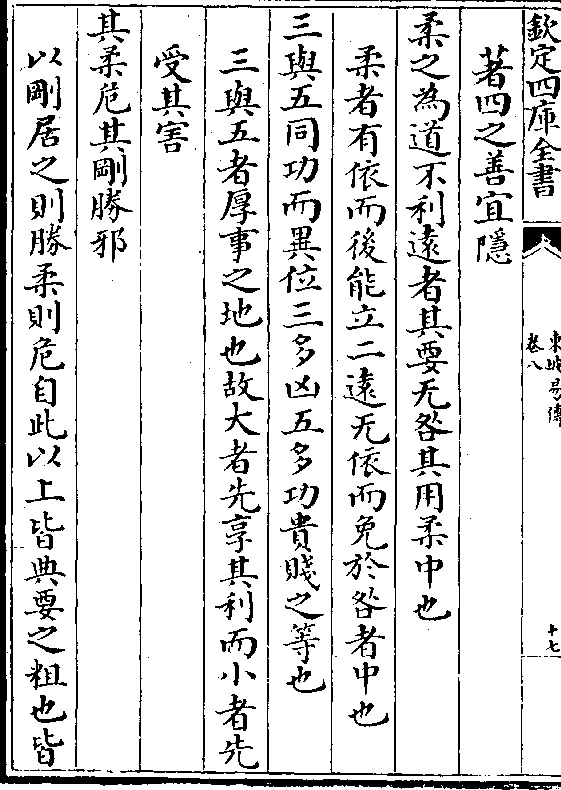 欽定四庫全書
東坡易傳
卷八
十七
著四之善宜隱
柔之為道不利遠者其要无咎其用柔中也
柔者有依而後能立二遠无依而免於咎者中也
三與五同功而異位三多凶五多功貴賤之等也
三與五者厚事之地也故大者先享其利而小者先
受其害
其柔危其剛勝邪
以剛居之則勝柔則危自此以上皆典要之粗也皆